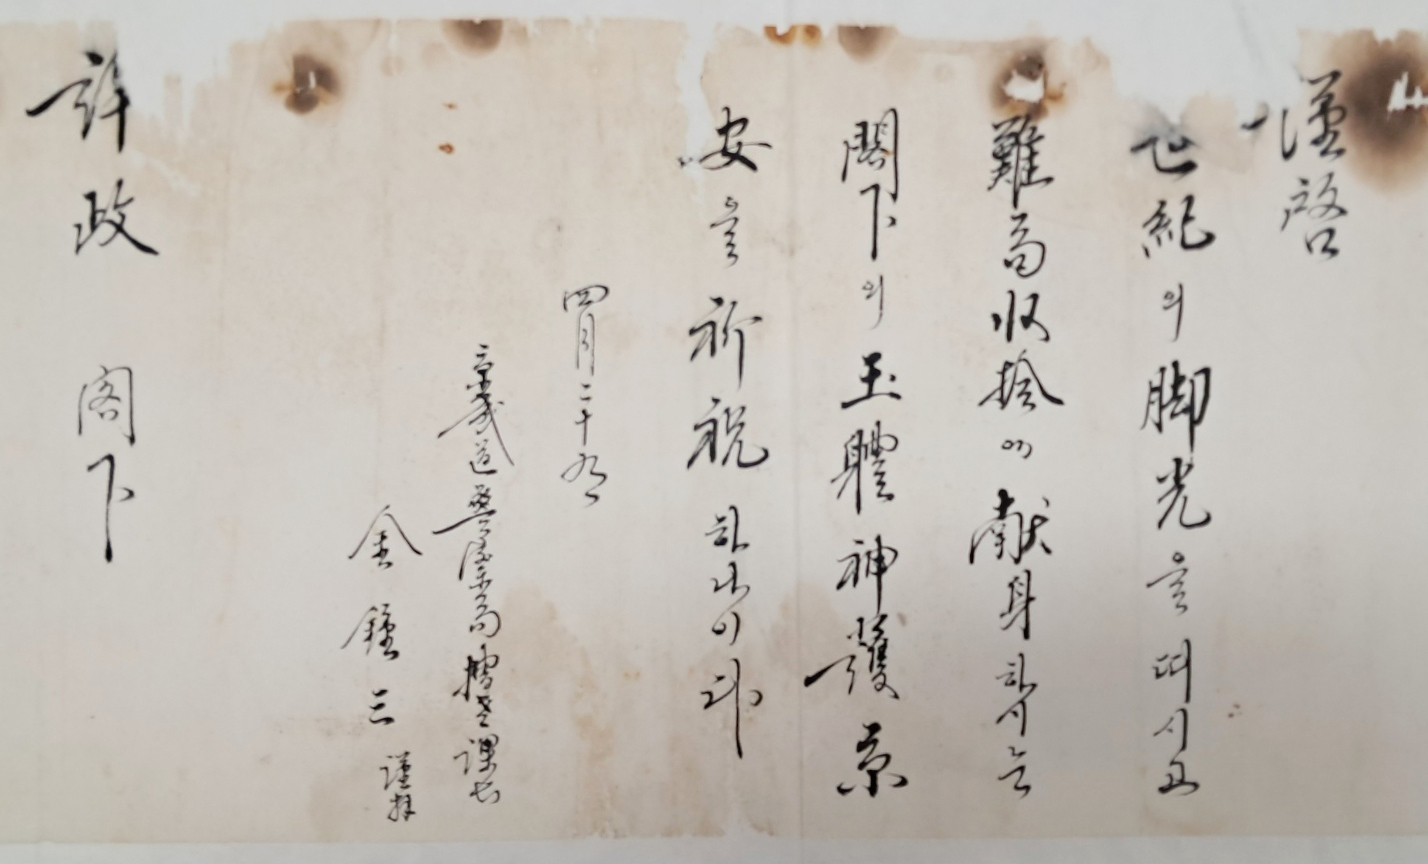 謹啓
世紀의 脚光을 띠시고
難局收拾에 献身하시는
閣下의 玉體神護京
安을 祈祝하나이다
四月二十九日
京畿道警察局 搜査課長
金鍾三 謹拜
許政 閣下